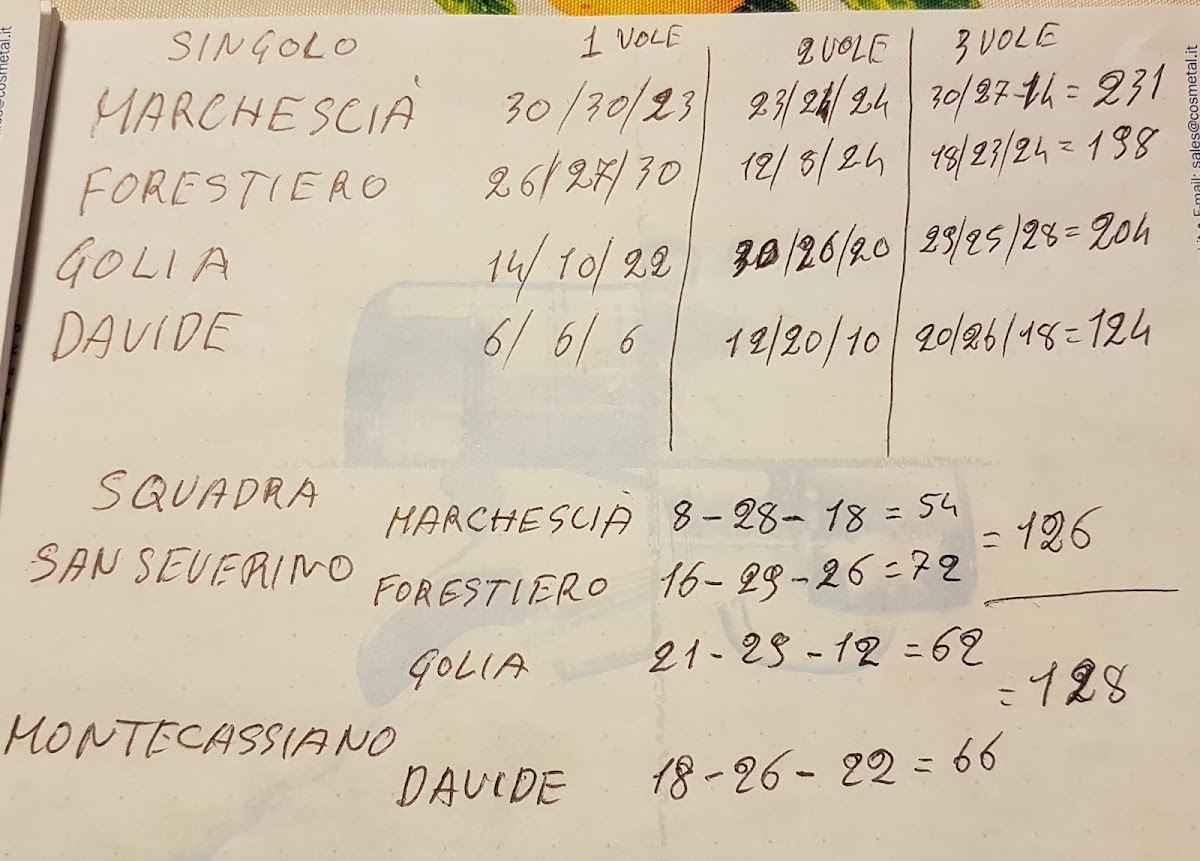 SINGOLO 1 VOLE 2 VOLE 3 VOLE
MARCHESCIÀ 30/30/23 29/24/24 30/27-14 = 231
FORESTIERO 26/27/30 12/8/24 18/29/24 = 198
GOLIA 14/10/22 30/26/20 29/25/28 = 204
DAVIDE 6/6/6 12/20/10 20/26/18 = 124
SQUADRA
SAN SEVERINO
MARCHESCIÀ 8-28-18 = 54
= 126
FORESTIERO 16-29-26 = 72
GOLIA 21-29-12 = 62
= 128
MONTECASSIANO
DAVIDE 18-26-22 = 66
E-mail: sales@cosmetal.it
@cosmetal.it